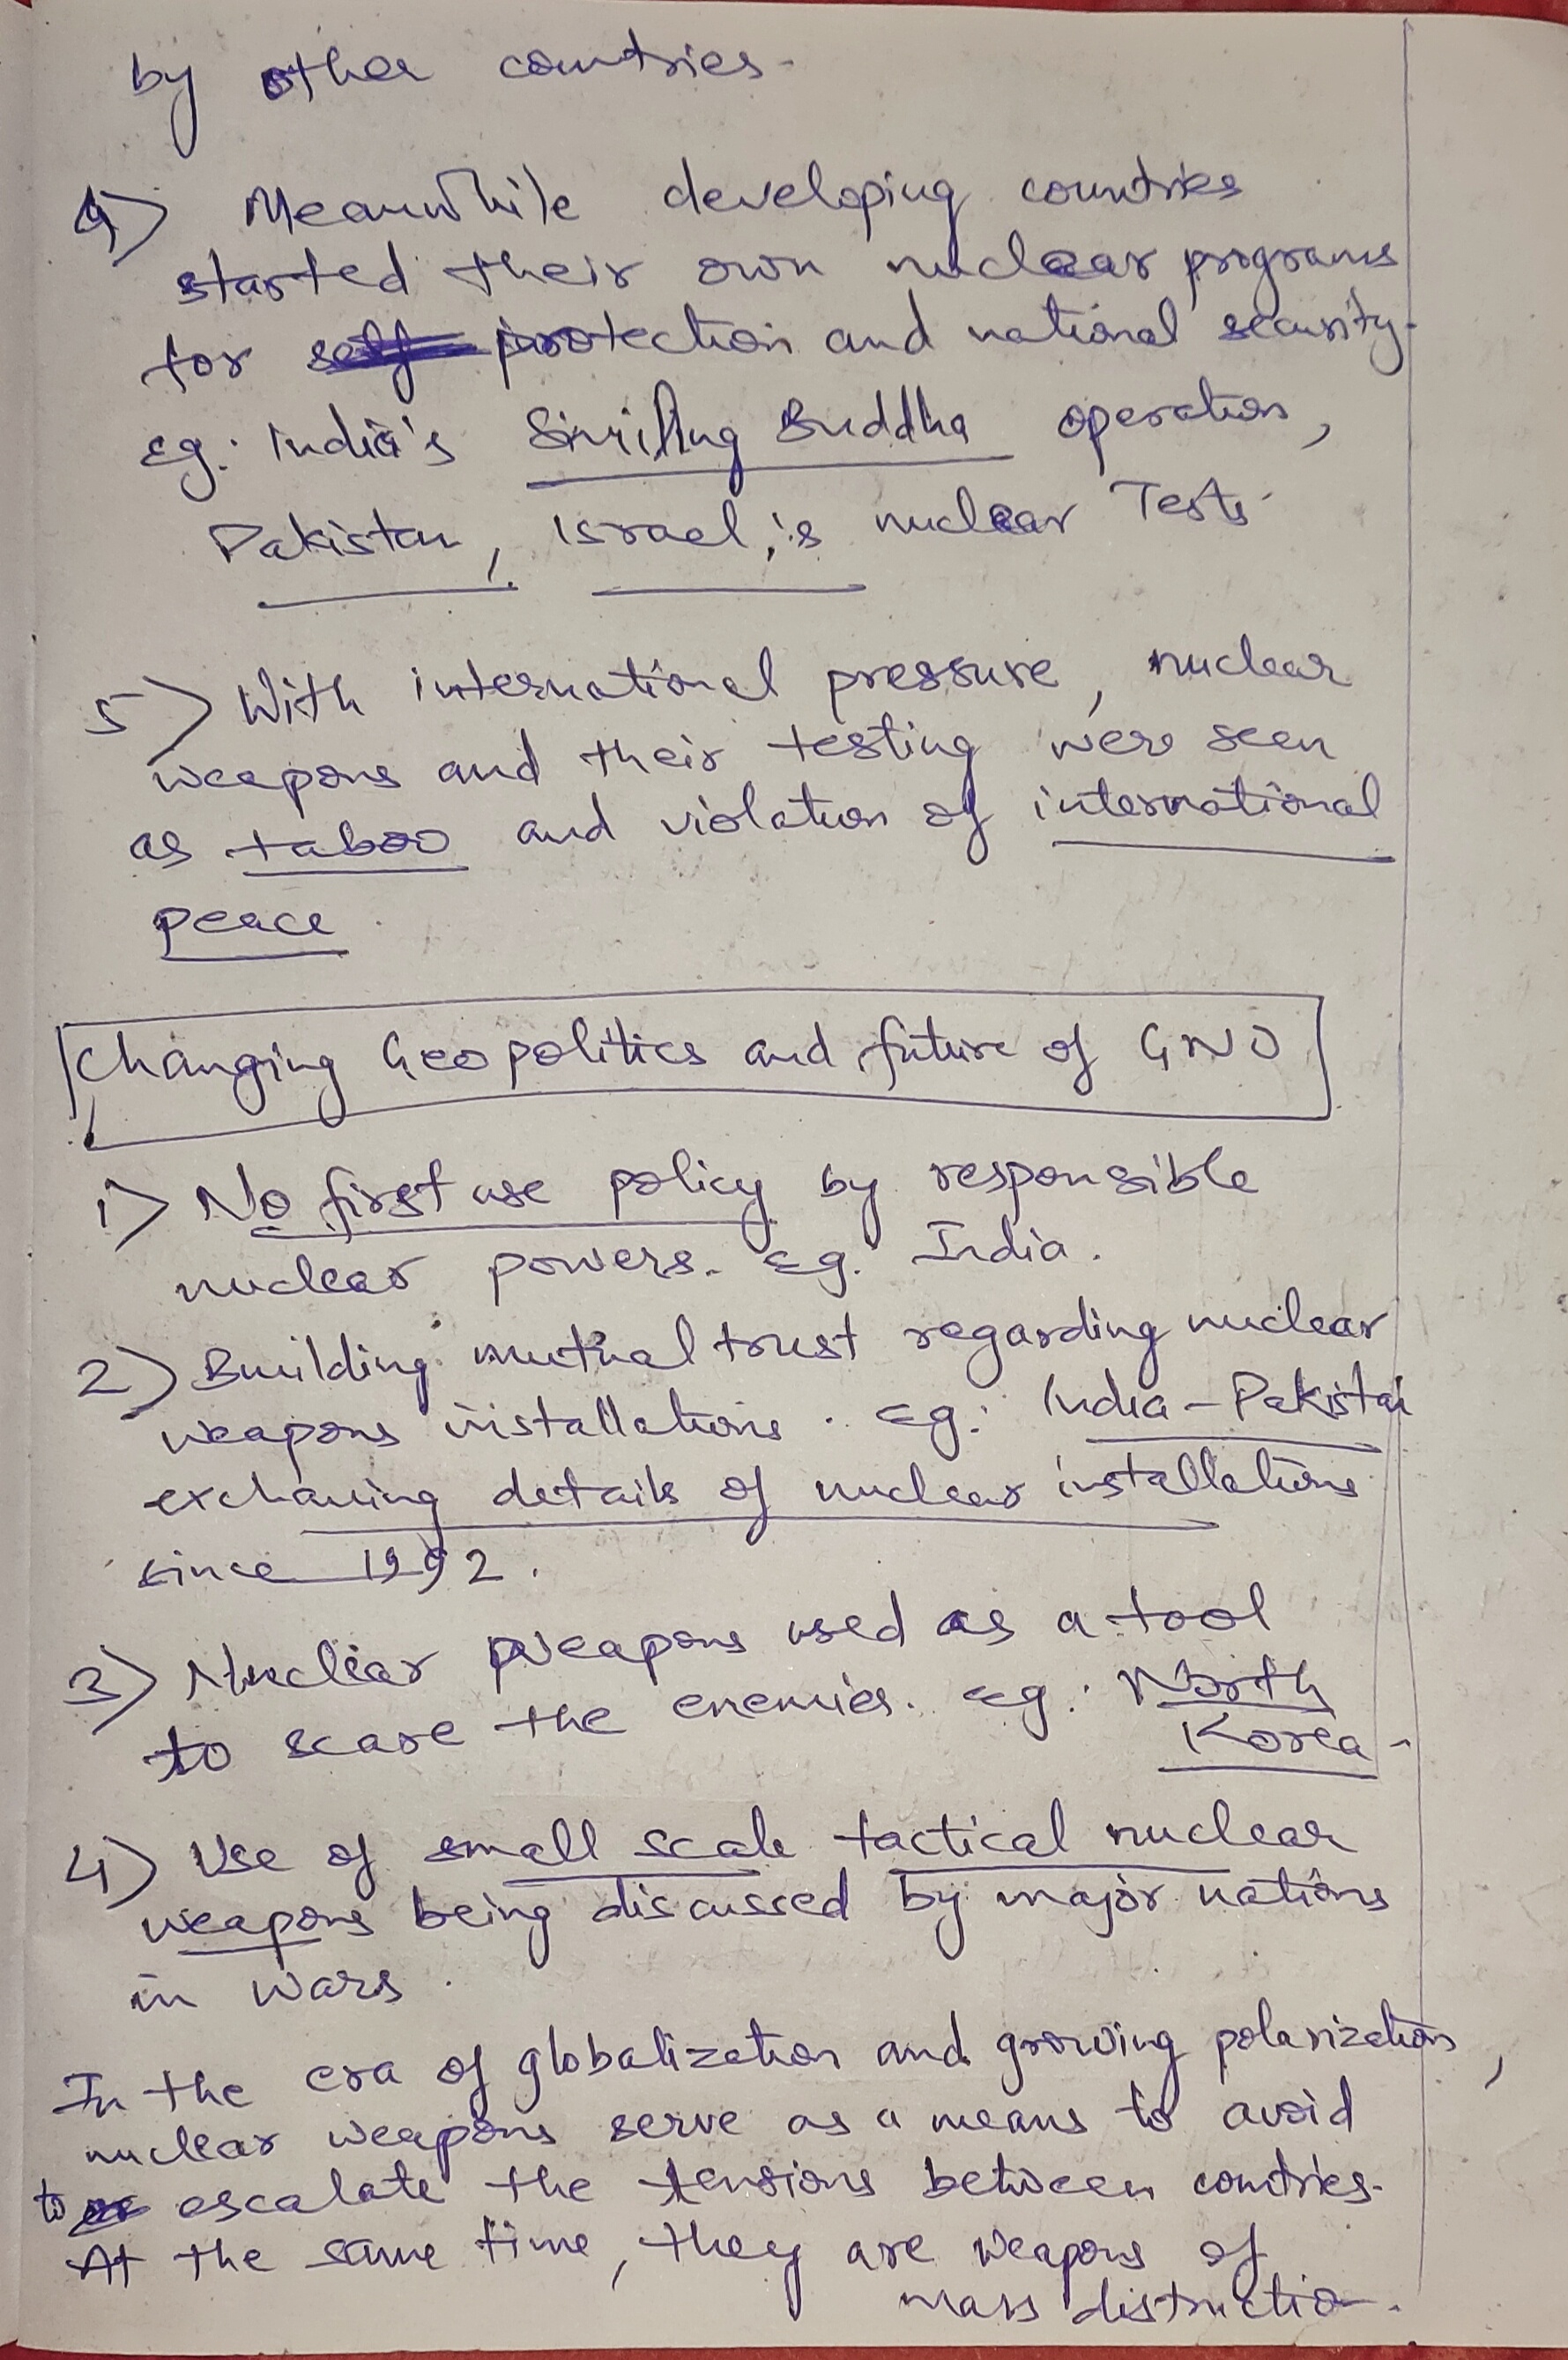 by other countries.
4) Meanwhile developing countries
started their own nuclear programs
for self protection and national security.
eg: India's Smiling Buddha operation,
Pakistan, Israel's nuclear Tests.
5) With international pressure, nuclear
weapons and their testing were seen
as taboo and violation of international
peace.
Changing Geopolitics and future of GNO
1) No first use policy by responsible
nuclear powers. Eg. India.
2) Building mutual trust regarding nuclear
weapons installations. eg: India-Pakistan
exchaning details of nuclear installations
since 1992.
3) Nuclear weapons used as a tool
to scare the enemies. eg: North
Korea.
4) Use of small scale tactical nuclear
weapons being discussed by major nations
in wars.
In the era of globalization and growing polarization,
nuclear weapons serve as a means to avoid
to escalate the tensions between countries.
At the same time, they are weapons of
mass distruction.